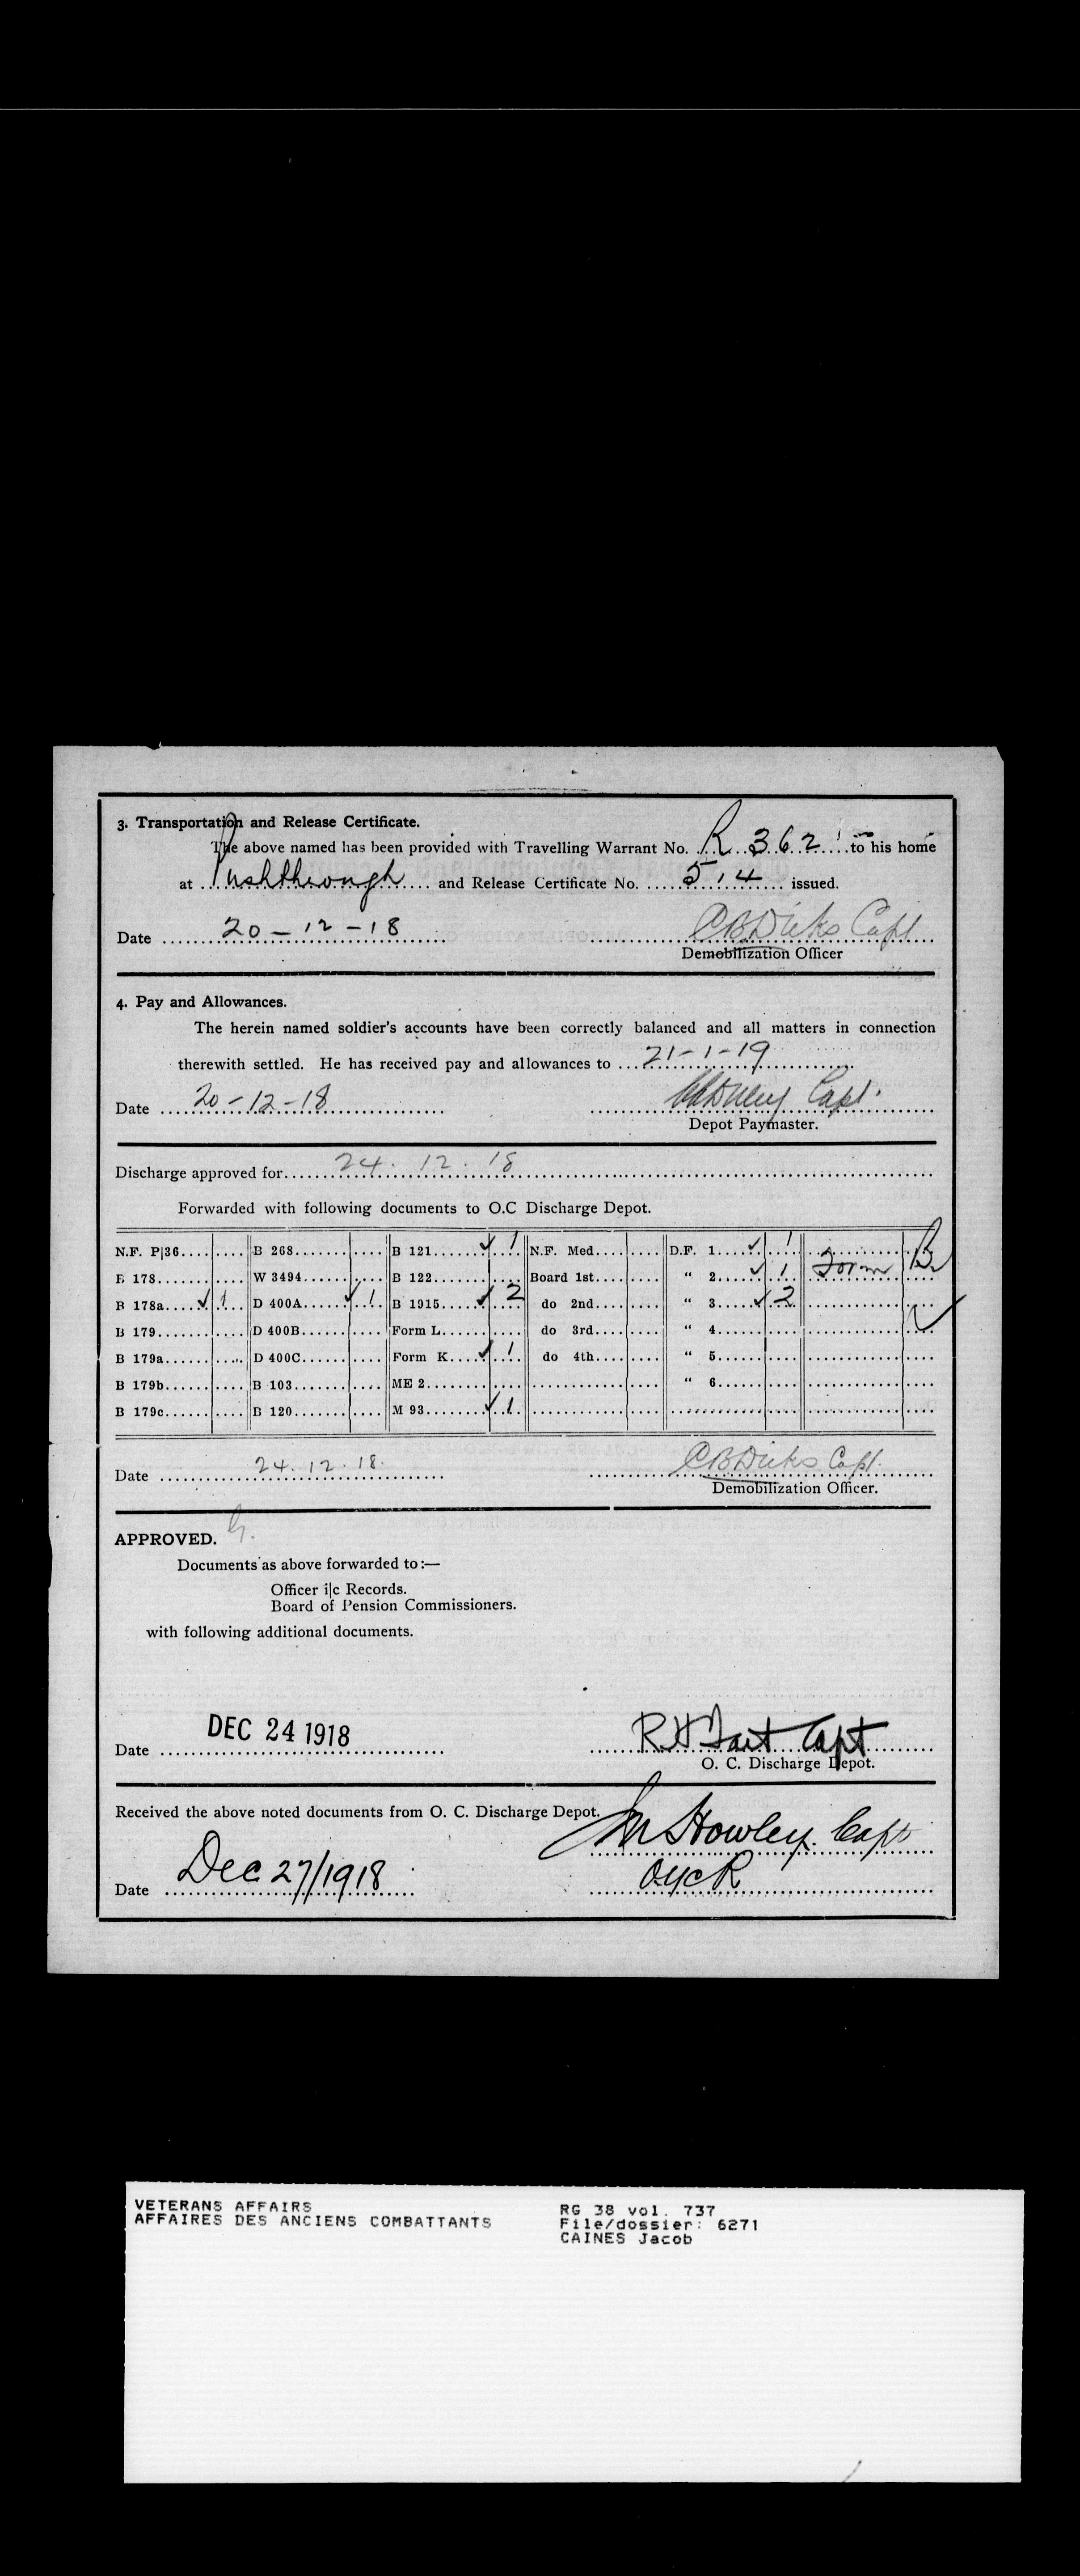 3. Transportation and Release Certificate.
The above named has been provided with Travelling Warrant No. R 362 to his home
at Pushthrough and Release Certificate No. 514 issued.
Date 20-12-18 C B Dicks Capt
Demobilization Officer
4. Pay and Allowances.
The herein named soldier's accounts have been correctly balanced and all matters in connection
therewith settled. He has received pay and allowances to 21-1-19
Date 20-12-18 Capt.
Depot Paymaster.
Discharge approved for 24. 12. 18
Forwarded with following documents to O.C Discharge Depot.
N.F. P|36 B 268 B 121 ✓ 1 N.F. Med. D.F. 1 ✓ 1
B 178 W 3494 B 122 Board 1st " 2 ✓ 1 Form B
B 178a ✓ 1 D 400A ✓ 1 B 1915 ✓ 2 do 2nd " 3 ✓ 2
B 179 D 400B Form L do 3rd " 4 ✓
B 179a D 400C Form K ✓ 1 do 4th " 5
B 179b B 103 ME 2 " 6
B 179c B 120 M 93 ✓ 1
Date 24. 12. 18. C B Dicks Capt.
Demobilization Officer.
APPROVED.
Documents as above forwarded to:—
Officer i|c Records.
Board of Pension Commissioners.
with following additional documents.
Date DEC 24 1918 R H Tait Capt
O. C. Discharge Depot.
Received the above noted documents from O. C. Discharge Depot.
Howley. Capt
Date Dec 27/1918 O i/c R
VETERANS AFFAIRS
AFFAIRES DES ANCIENS COMBATTANTS
RG 38 vol. 737
File/dossier: 6271
CAINES Jacob